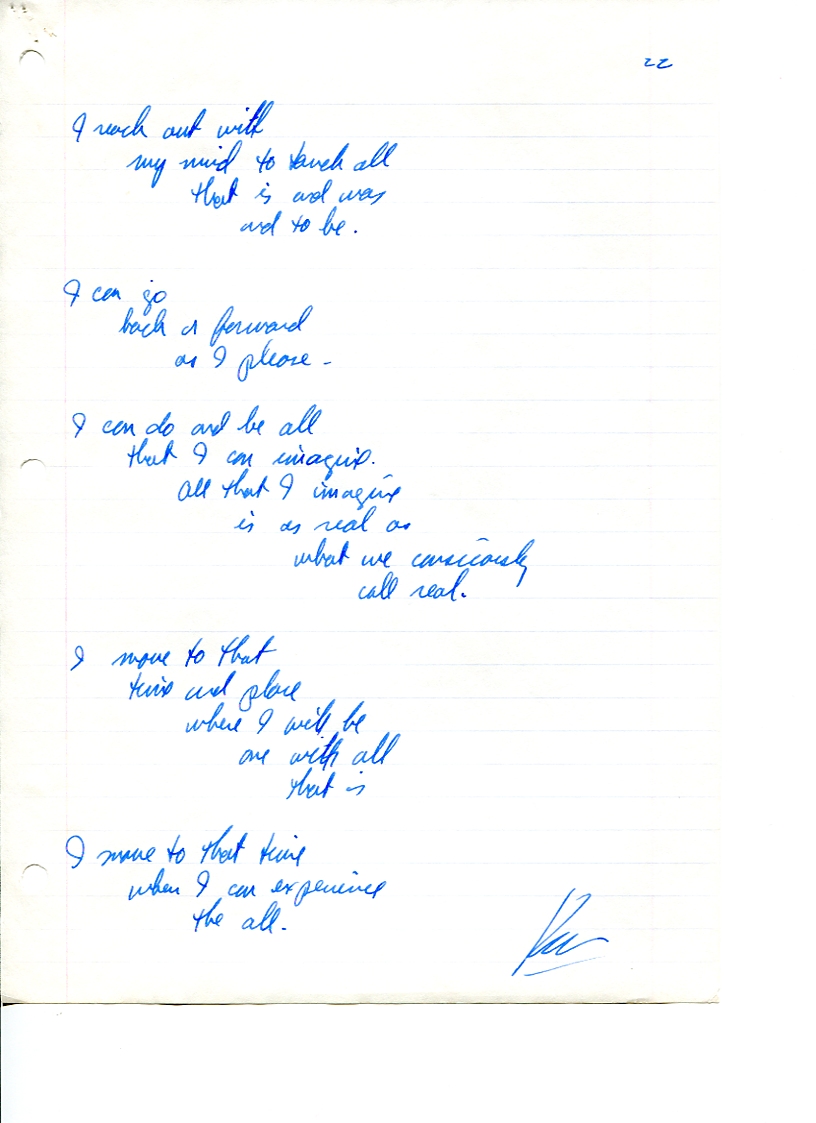 22
I reach out with
my mind to touch all
that is and was
and to be.
I can go
back or forward
as I please -
I can do and be all
that I can imagine.
all that I imagine
is as real as
what we consciously
call real.
I move to that
time and place
where I will be
one with all
that is
I move to that time
when I can experience
the all.